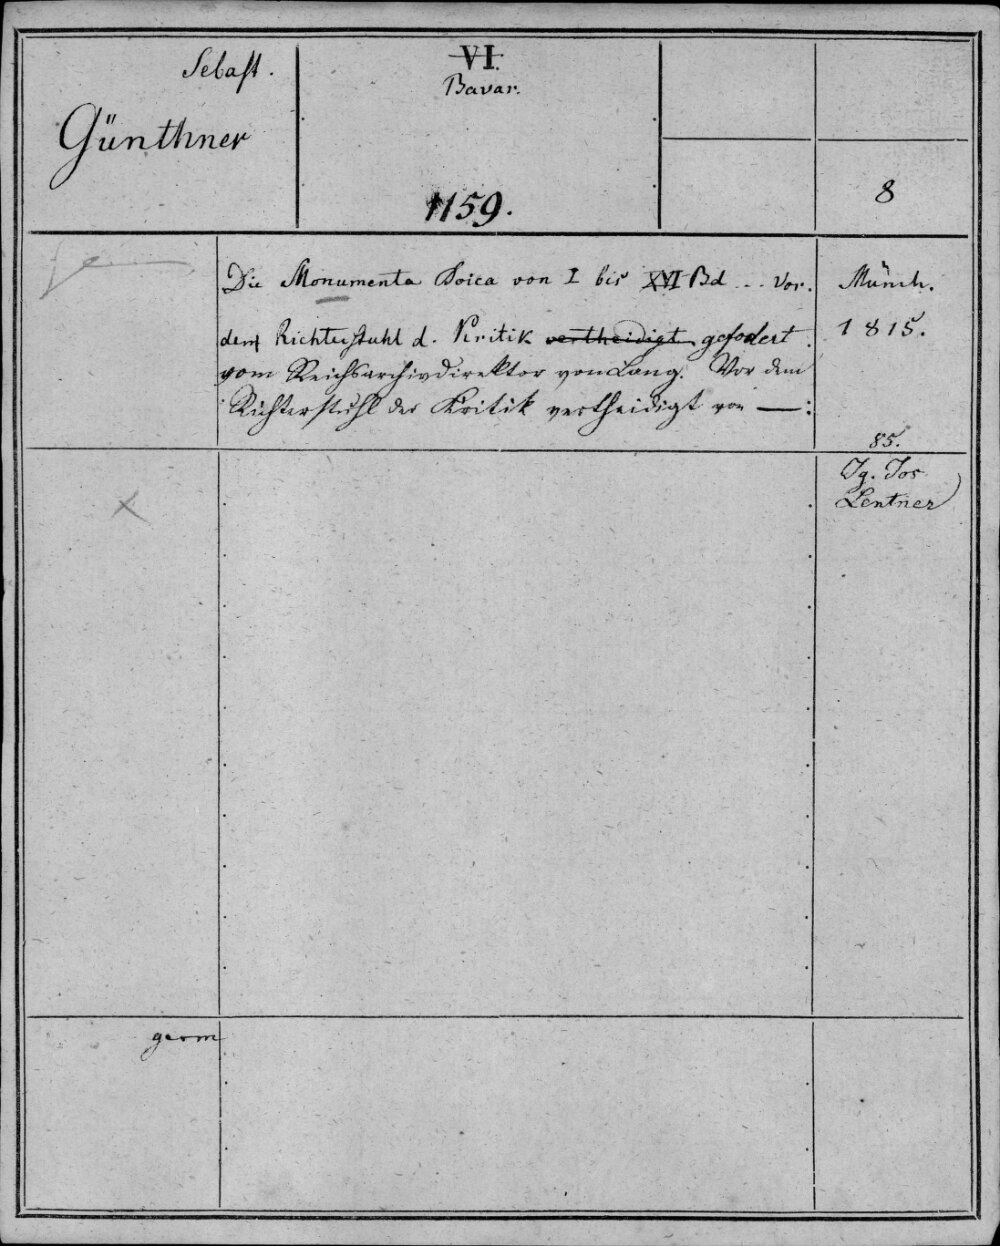 Sebast.
Günthner
VI.
Bavar.
1159.
8
Die Monumenta Boica von I bis XVI Bd ... Vor
dem Richterstuhl d. Kritik vertheidigt gefodert
vom Reichsarchivdirektor von Lang. Vor dem
Richterstuhl der Kritik vertheidigt von —:
Münch.
1815.
85.
Jg. Jos
Lentner
x
germ